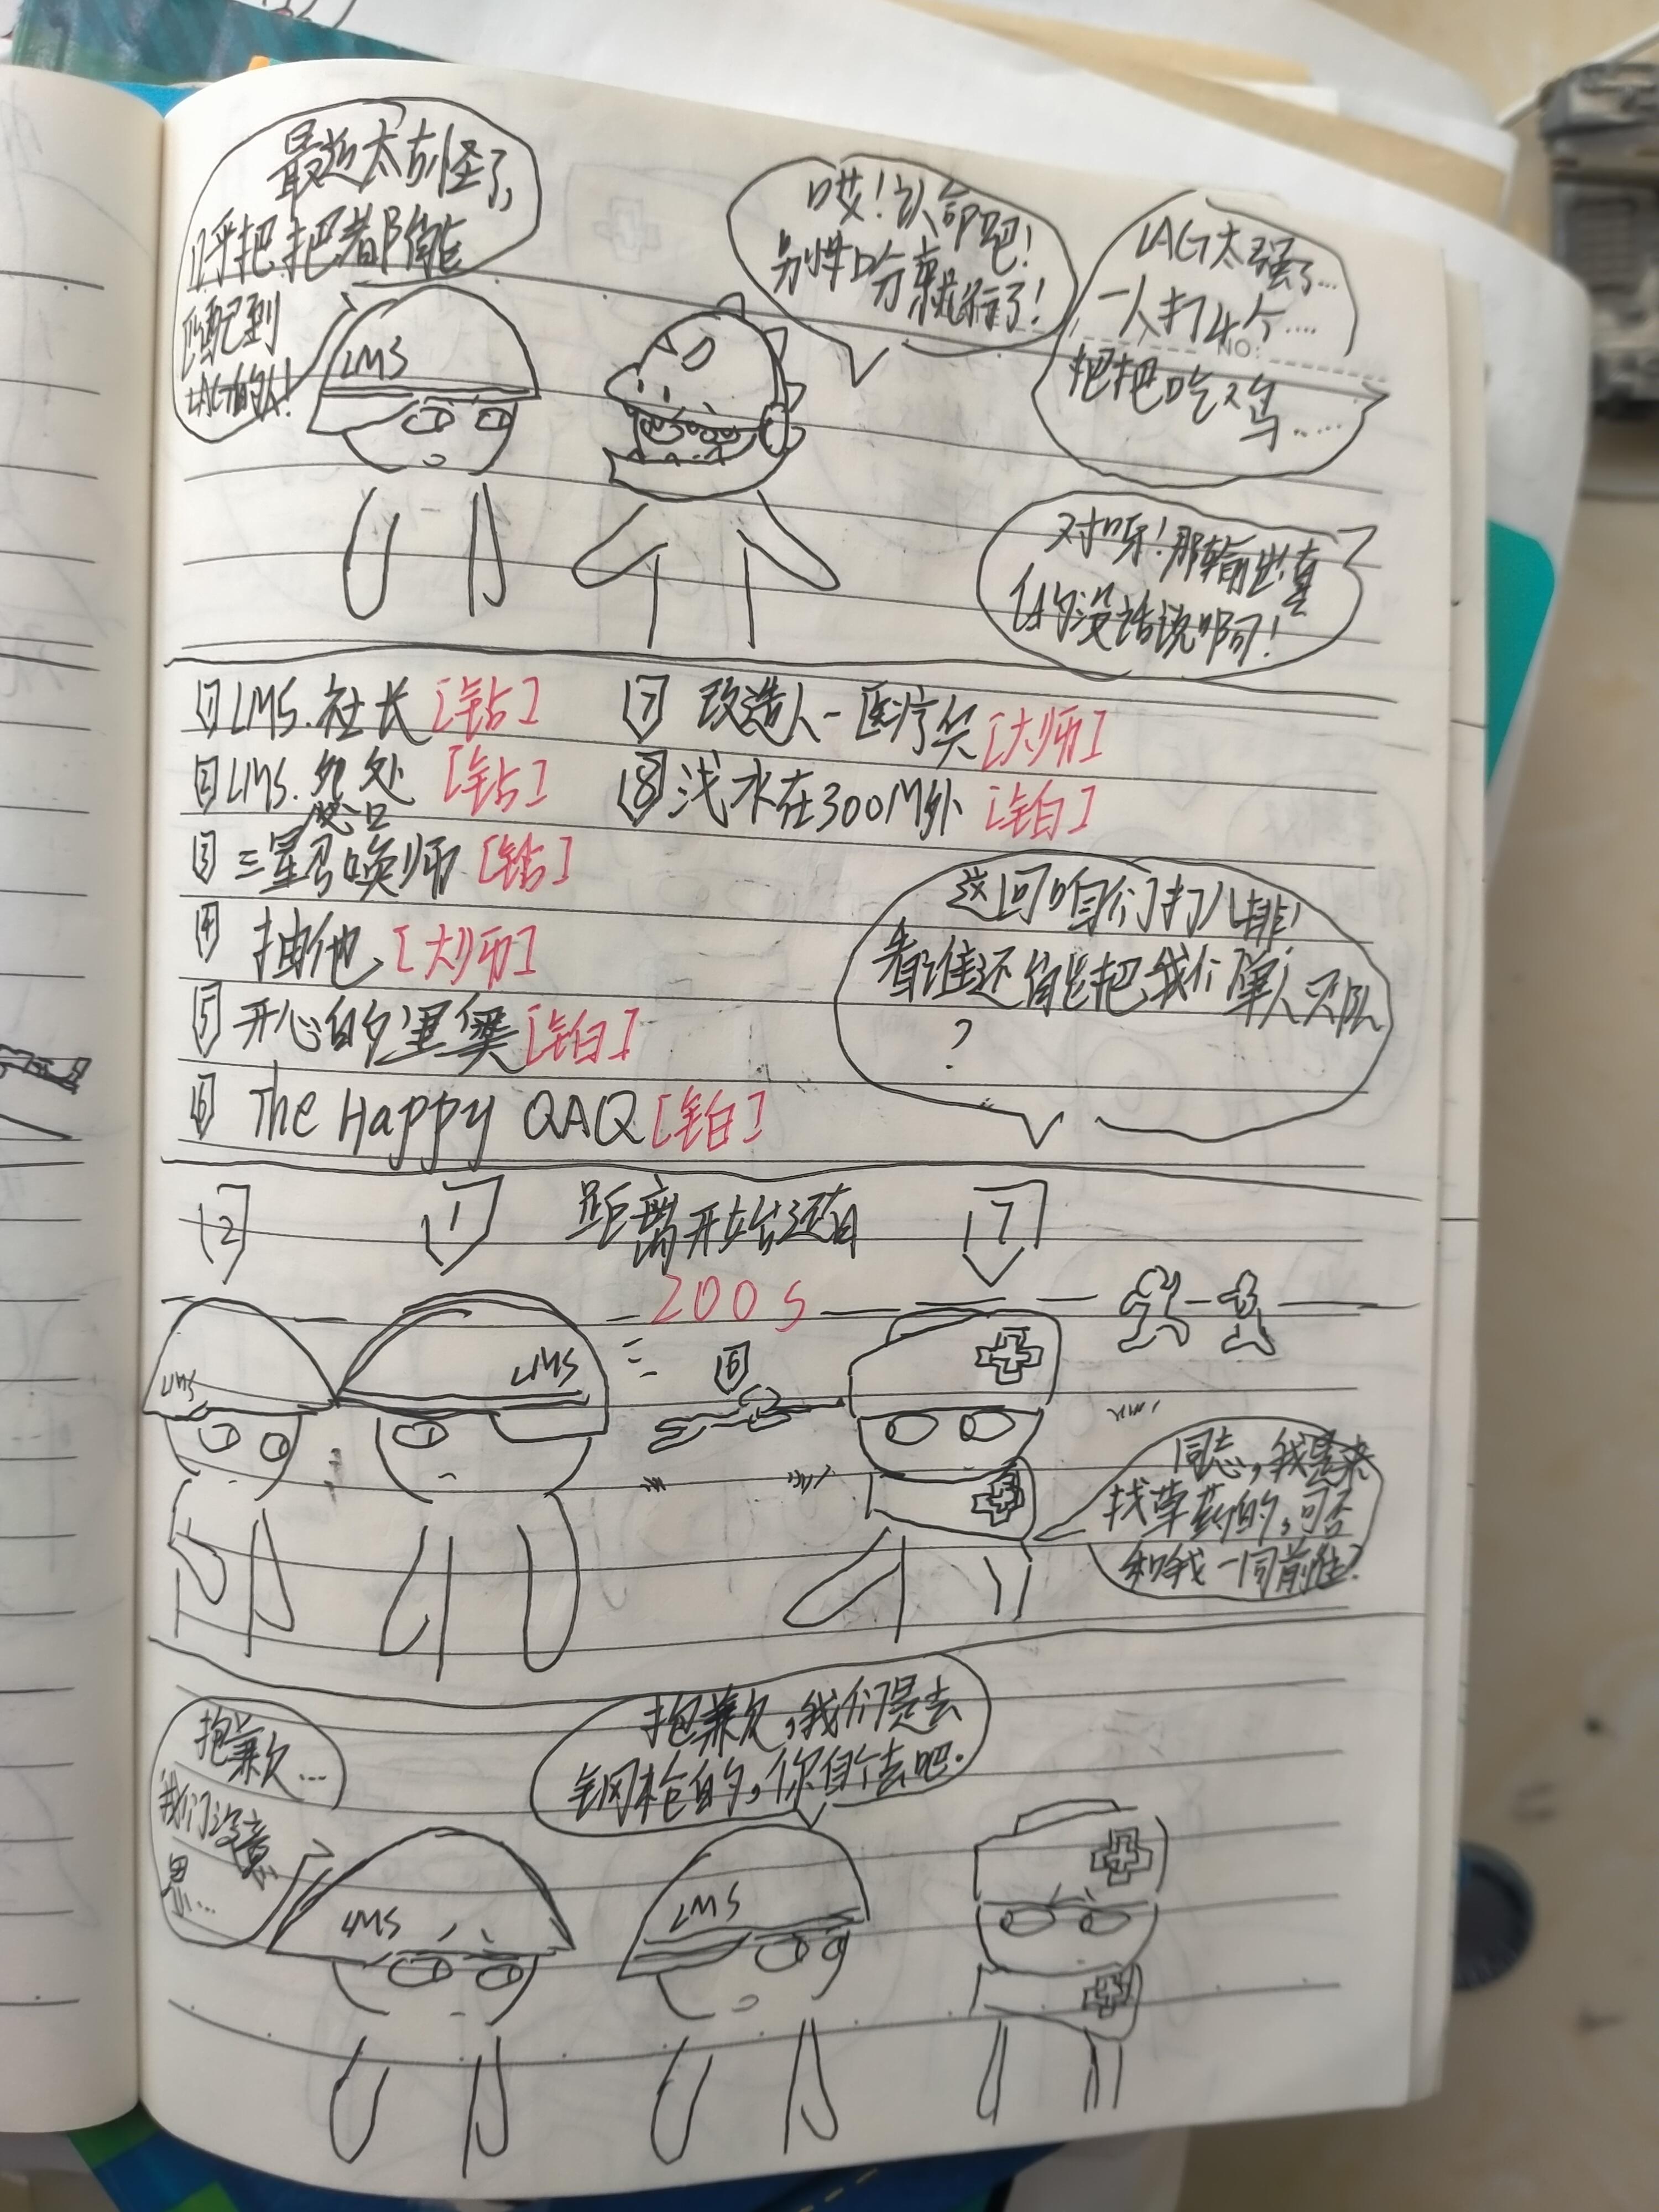 最近太古怪了,
几乎把把都能
匹配到
LAG的人!
哎!认命吧!
别掉分就行了!
LAG太强了...
一人打4个....
把把吃鸡.....
NO:
对呀!那输出真
的没话说啊!
LMS
1 LMS.社长[钻]
2 LMS. 处
3 三星召唤师[钻]
4 抽他[大师]
5 开心的堡[铂]
6 The Happy QAQ[铂]
7 改造人-医疗兵[大师]
8 浅水在300M外[铂]
[钻]
这回咱们打八排!
看谁还能把我们单人灭队
?
2
1
距离开始还有
7
200s
LMS
LMS
6
同志,我是来
找草药的,可否
和我一同前往?
抱歉...
我们没意
思...
抱歉,我们是去
钢枪的,你自个去吧.
LMS
LMS